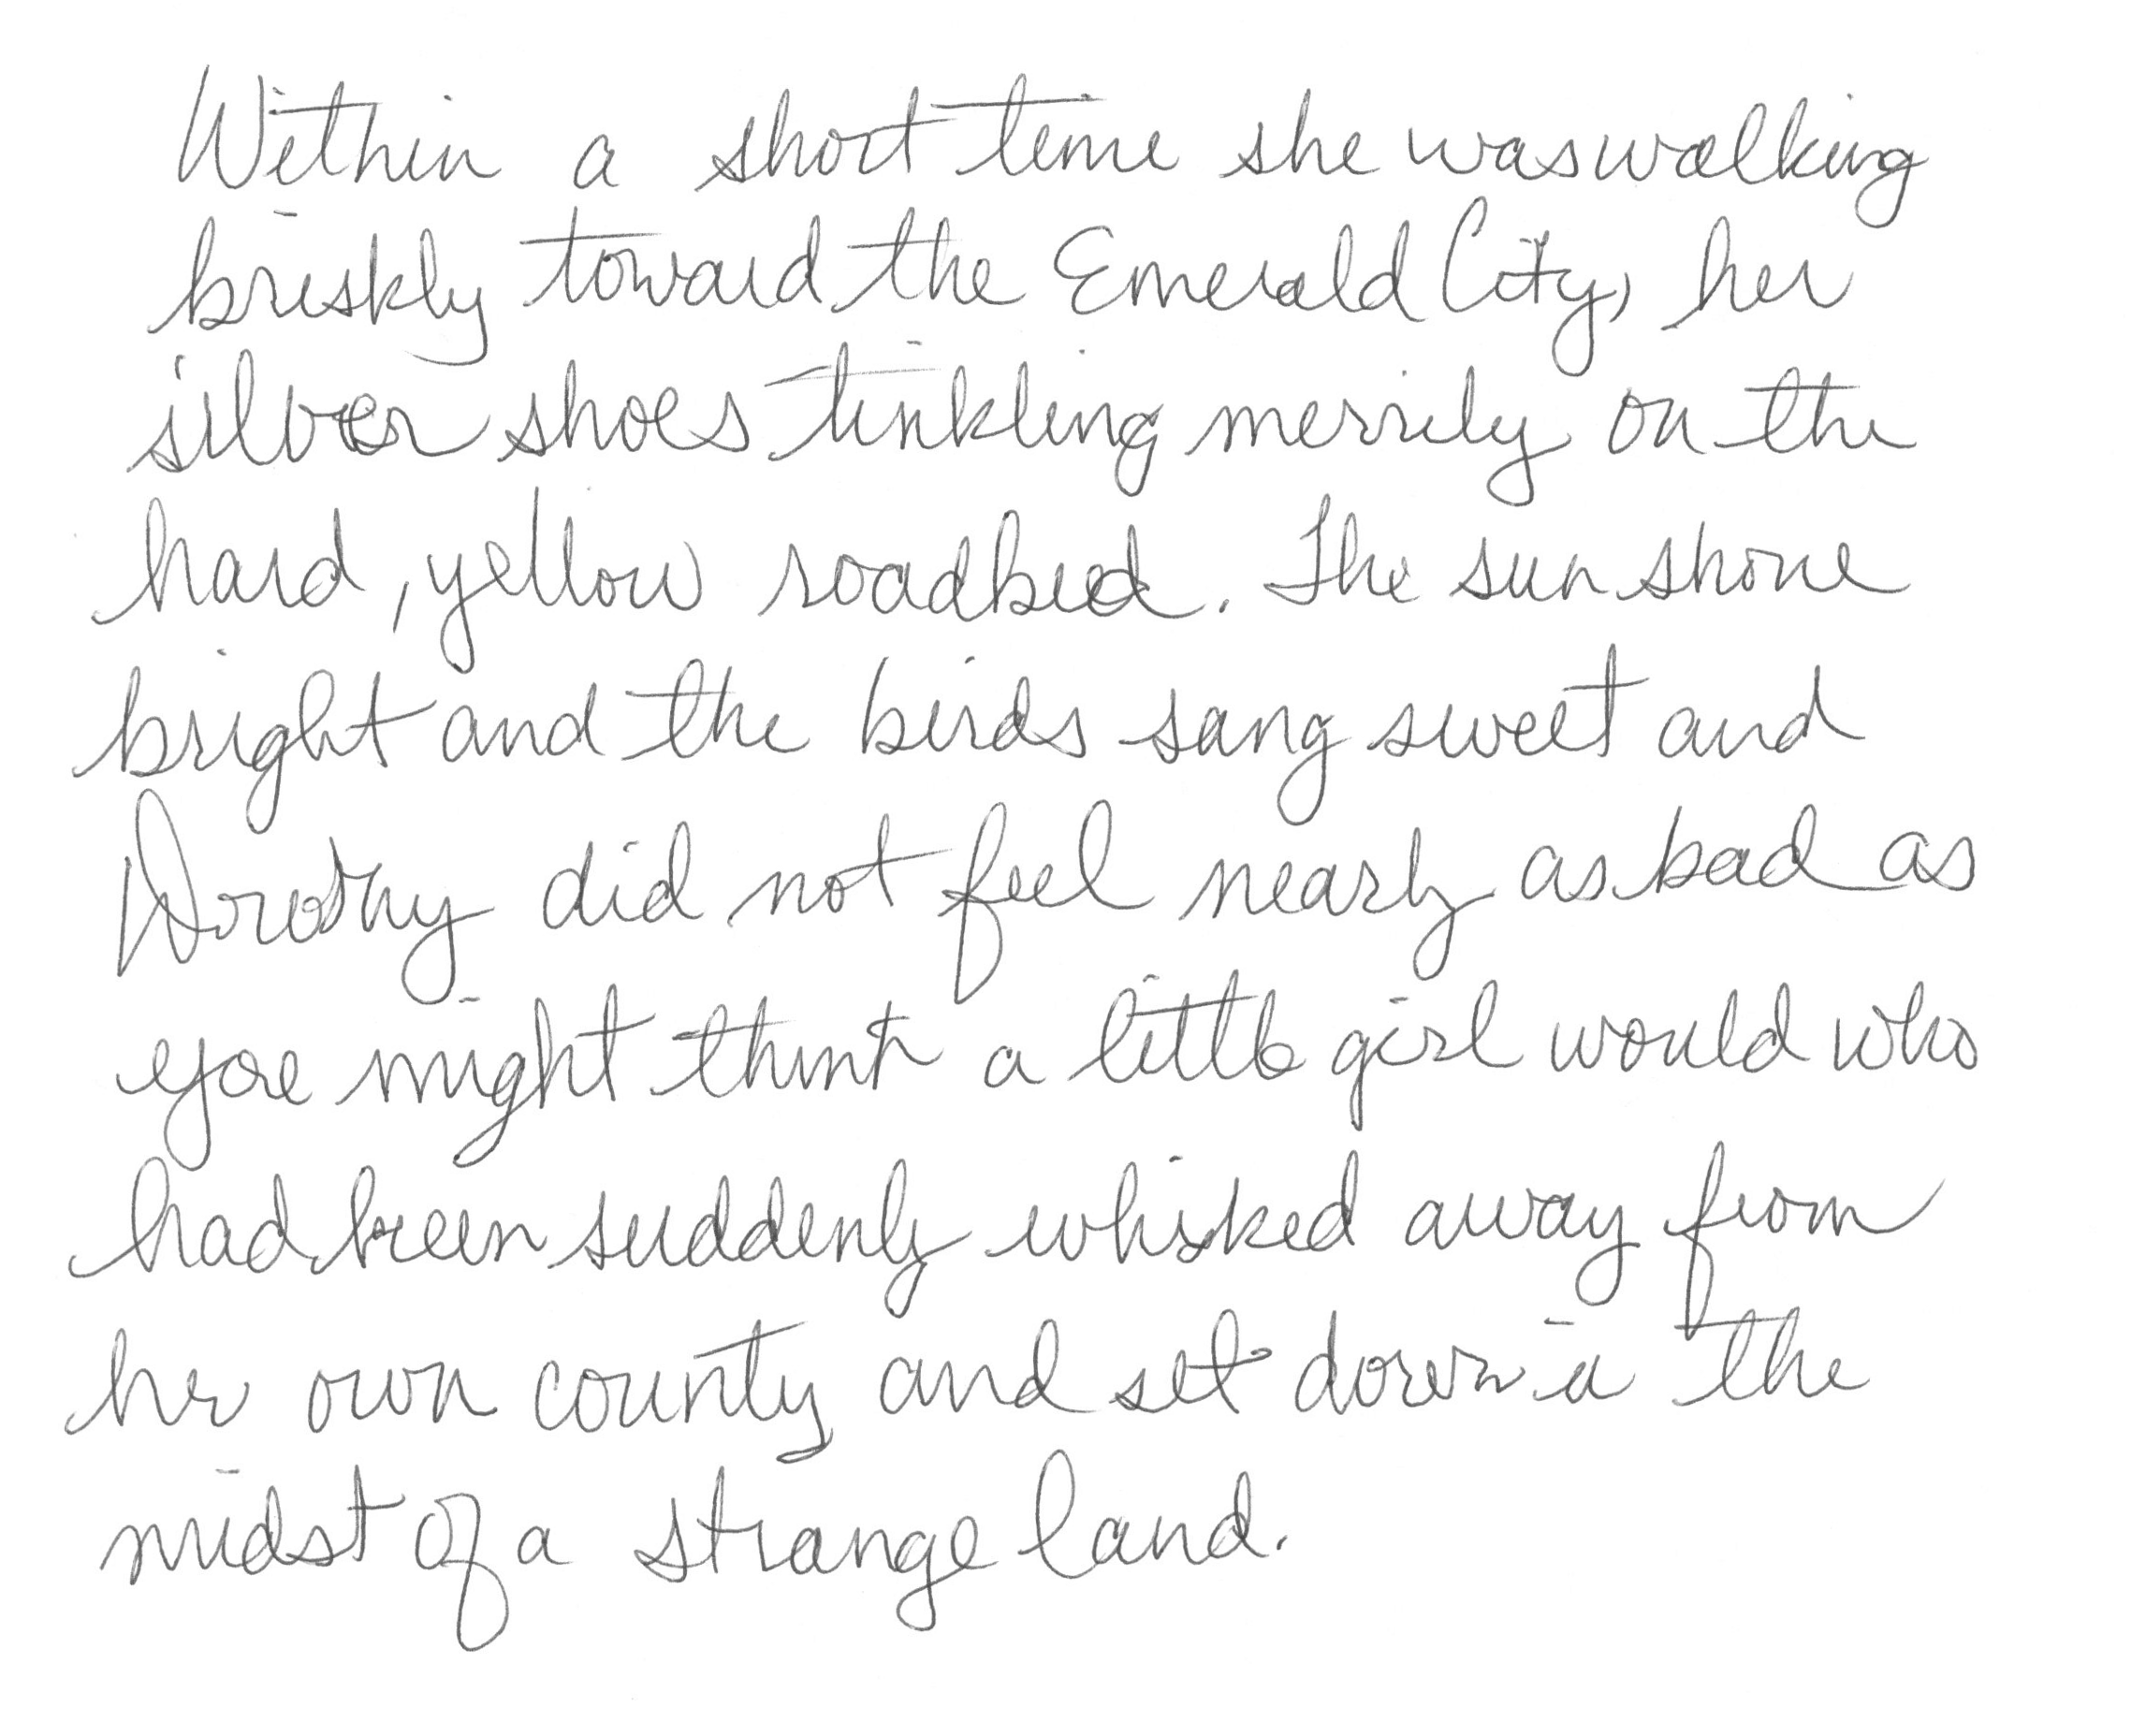 Within a short time she was walking
briskly toward the Emerald City, her
silver shoes tinkling merrily on the
hard, yellow roadbed. The sun shone
bright and the birds sang sweet and
Dorothy did not feel nearly as bad as
you might think a little girl would who
had been suddenly whisked away from
her own county and set down in the
midst of a strange land.